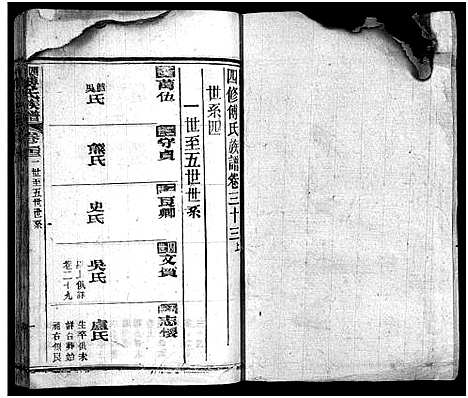 四修傅氏族譜卷三十三上
世系四
一世至五世世系
萬伍
守貞
良卿
文質
志懷
氏
俞氏
史氏
吳氏
卷二十九
盧氏
生卒俱未
傅氏族譜
卷三
一世至五世世系